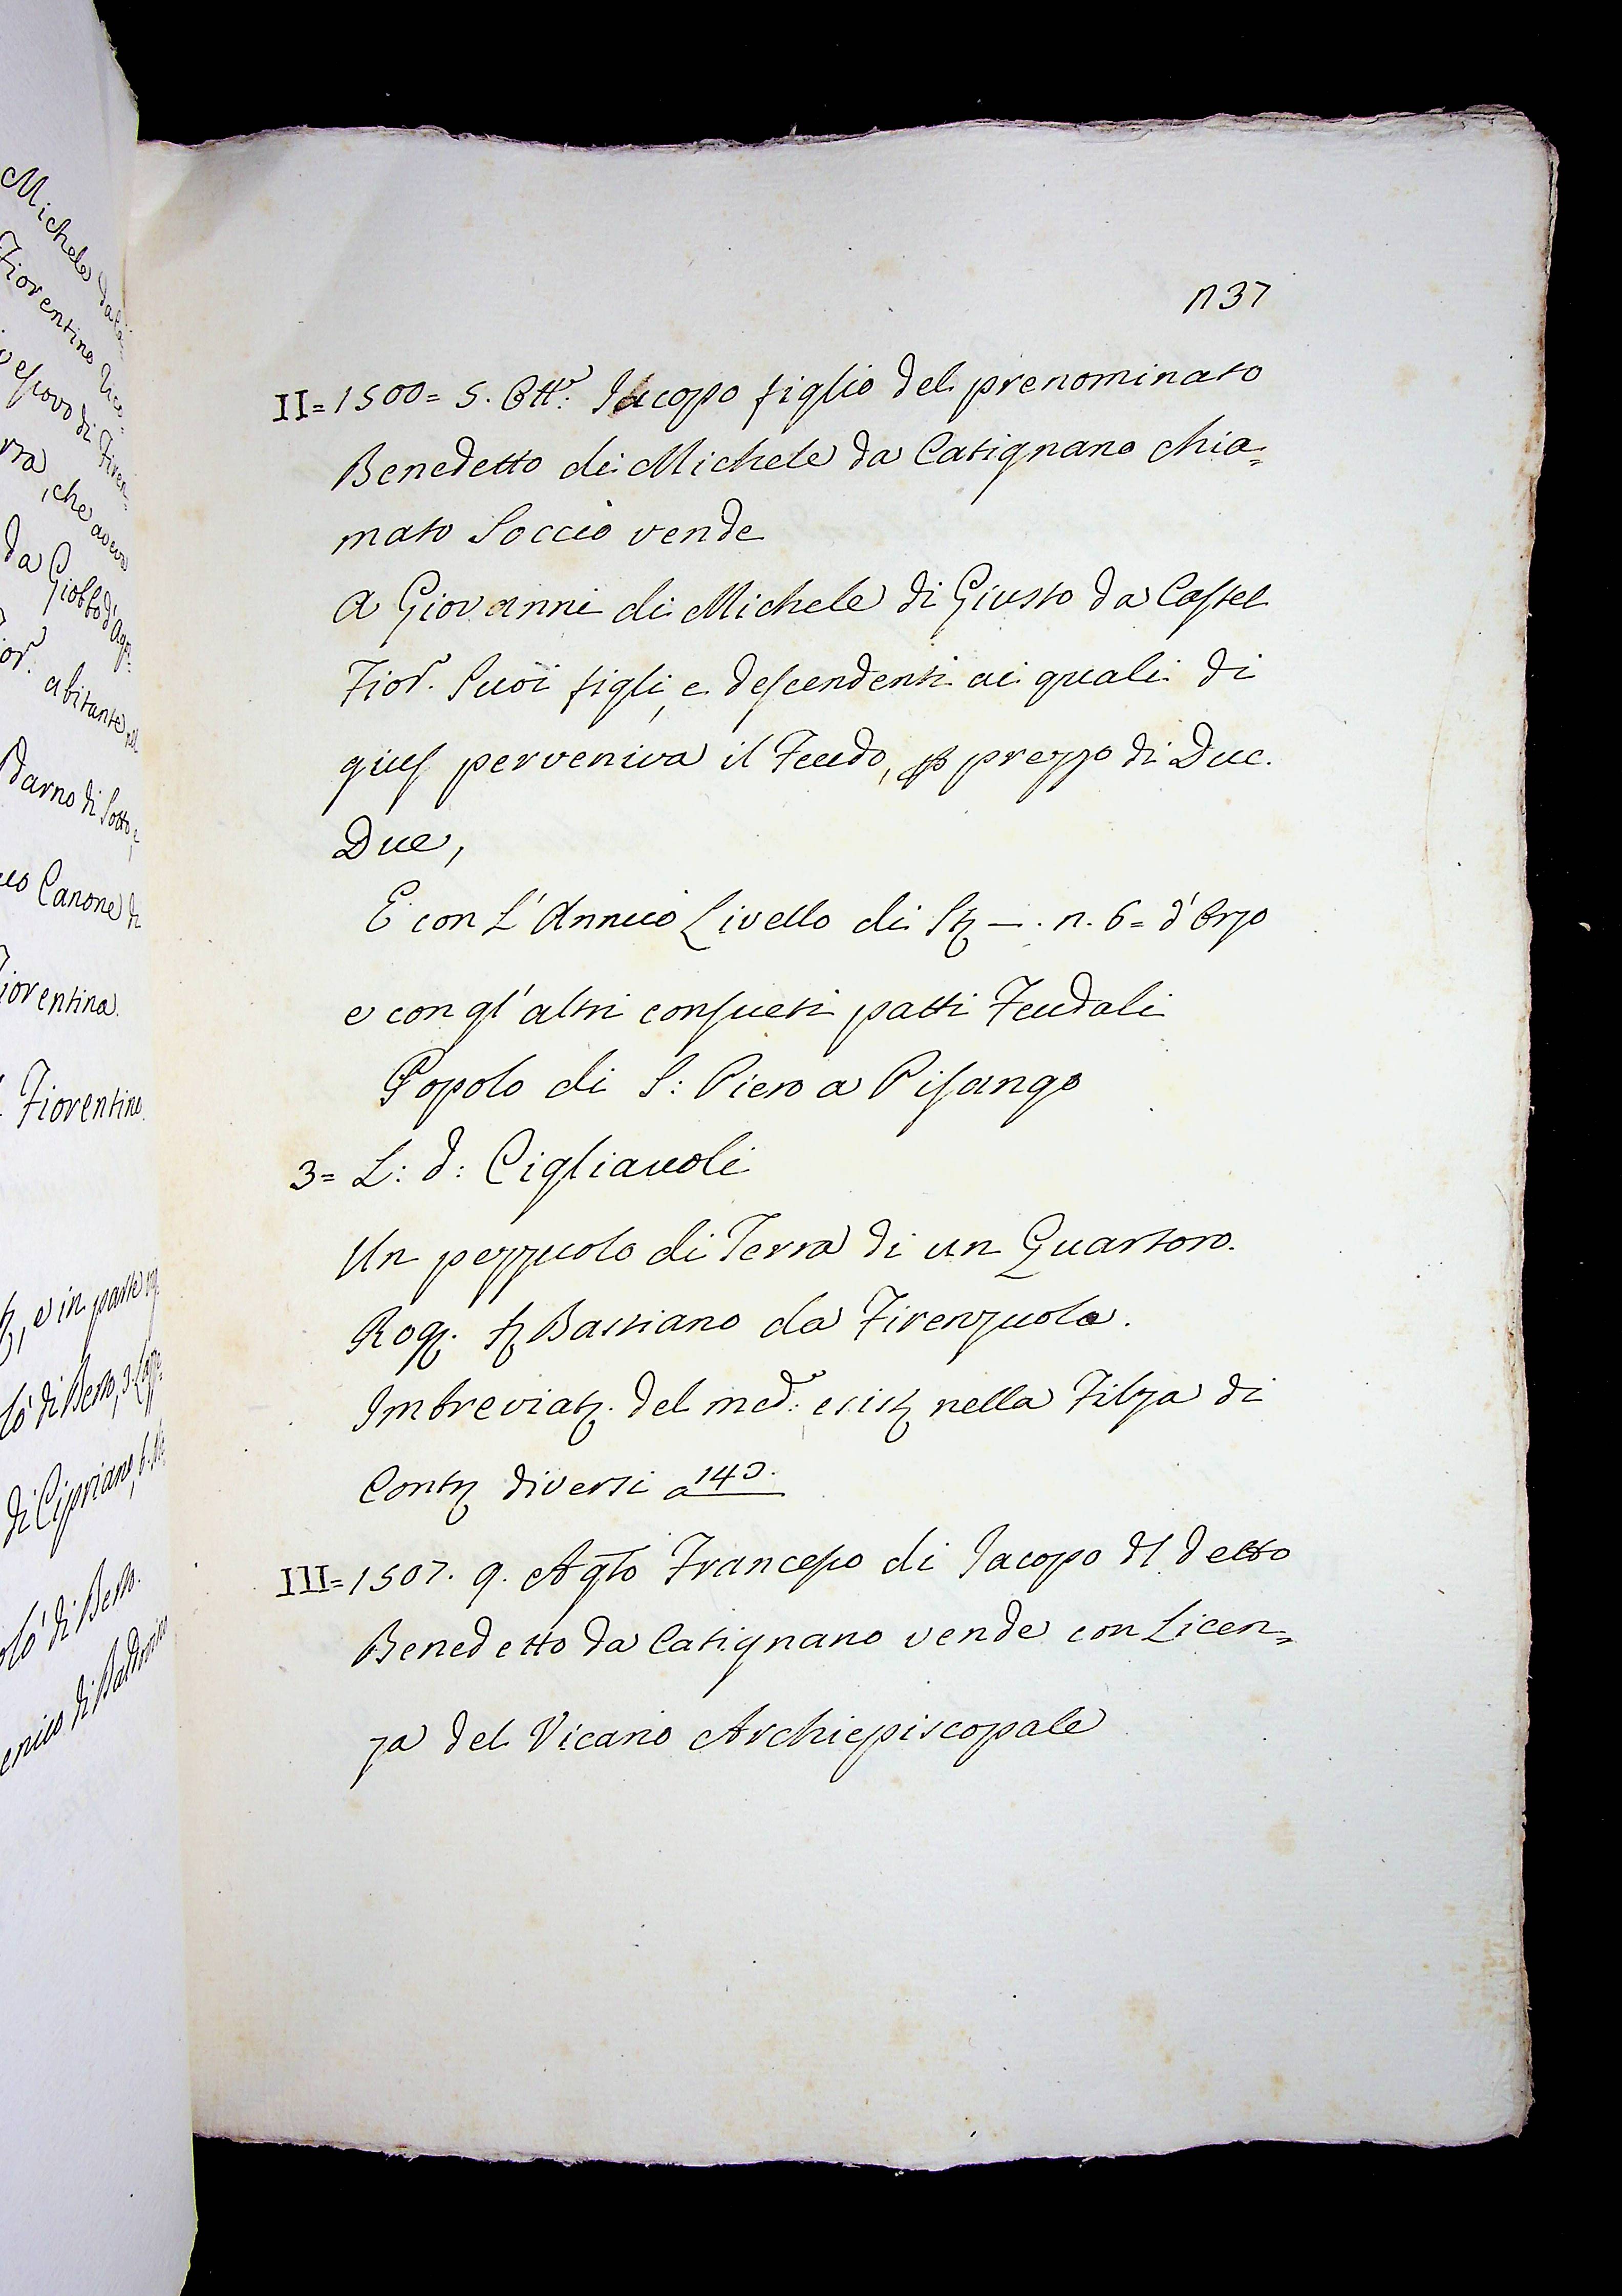 Michele da Ca-
Fiorentino Vice-
escovo di Firen-
rra, che aveva
da Giobbo d'Ago-
or. abitante nel
Darno di Sotto, e
Canone di
iorentina.
Fiorentino.
e in parte
lò di Berto, 3.
di Cipriano, 6.
olò di Berto.
enico di
1137
II = 1500 = 5. Ott.e Jacopo figlio del prenominato
Benedetto di Michele da Catignano chia=
mato Soccio vende
a Giovanni di Michele di Giusto da Castel
Fior. Suoi figli, e descendenti ai quali di
gius perveniva il Feudo, p prezzo di Duc.
Due,
E con L'Annuo Livello di St — . n. 6 = d'Orzo
e con gl'altri consueti patti Feudali
Popolo di S: Piero a Pisango
3 = L: d: Cigliavoli
Un pezzuolo di Terra di un Quartoro.
Rog. Bastiano da Firenzuola.
Imbreviat. del med: esist nella Filza di
Contt diversi a 143.
III = 1507. 9. Agto Francesco di Jacopo dl detto
Benedetto da Catignano vende con Licen=
za del Vicario Archiepiscopale